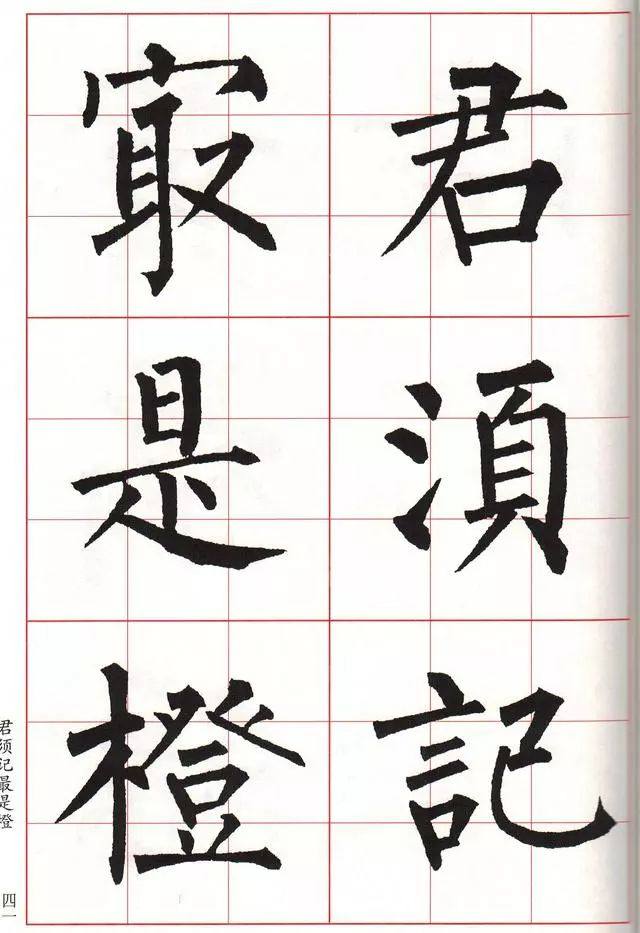 君須記
冣是橙
君须记最是橙
四一